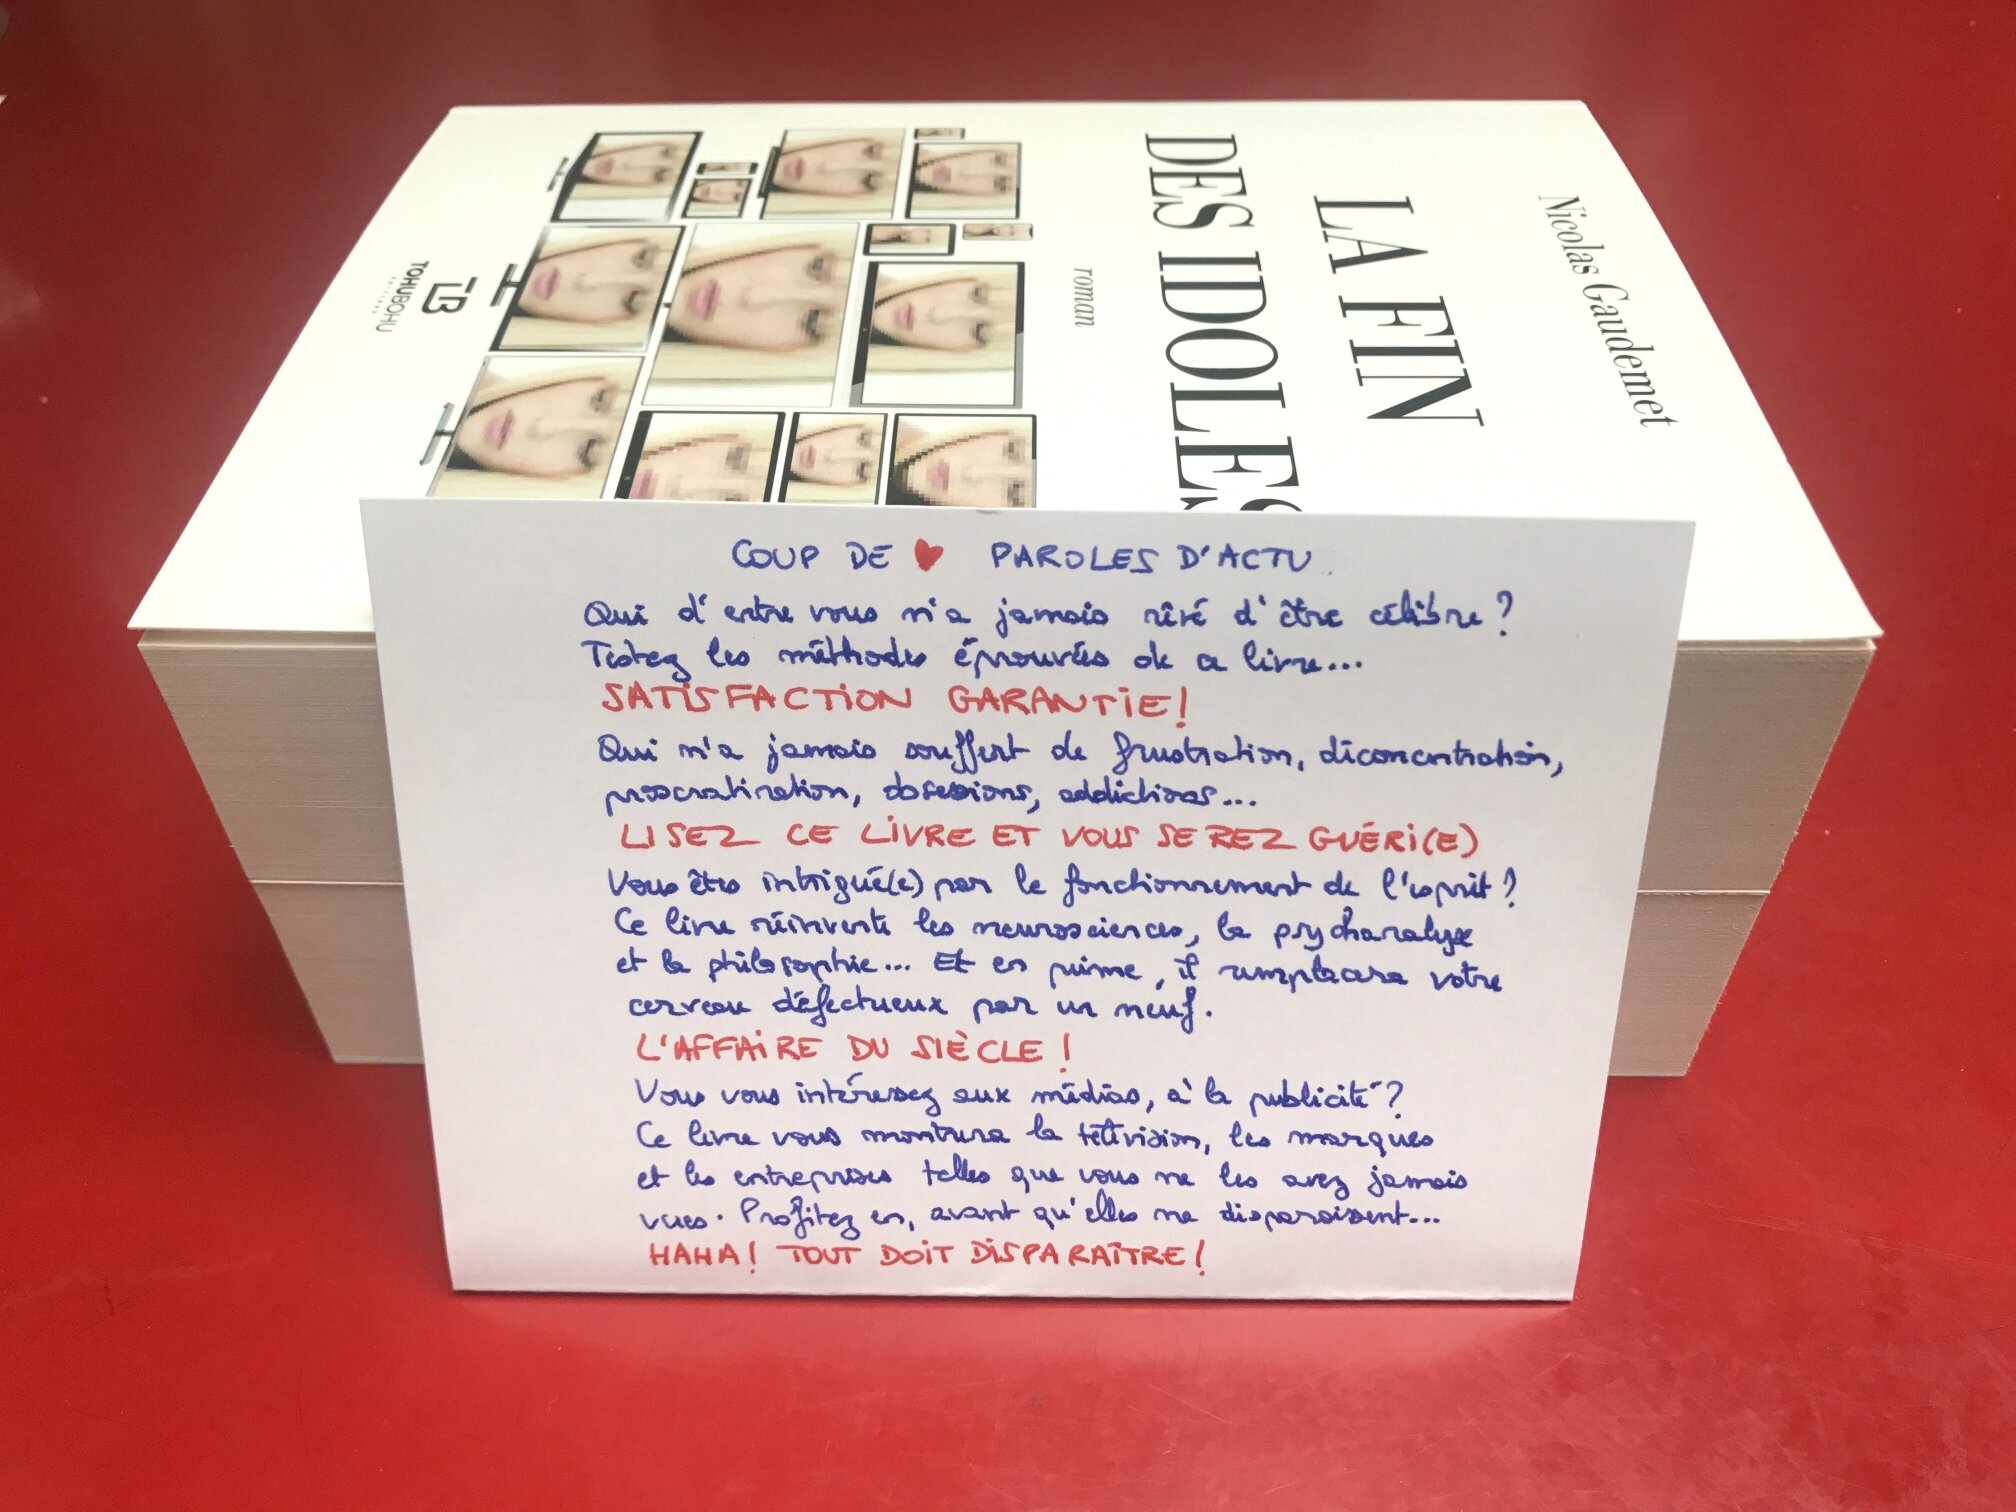 Nicolas Gaudemet
LA FIN
DES IDOLES
roman
TOHUBOHU
COUP DE ❤ PAROLES D'ACTU
Qui d'entre vous n'a jamais rêvé d'être célèbre ?
Testez les méthodes éprouvées de ce livre...
SATISFACTION GARANTIE !
Qui n'a jamais souffert de frustration, déconcentration,
procrastination, obsessions, addictions...
LISEZ CE LIVRE ET VOUS SEREZ GUÉRI(E)
Vous êtes intrigué(e) par le fonctionnement de l'esprit ?
Ce livre réinvente les neurosciences, la psychanalyse
et la philosophie... Et en prime, il remplacera votre
cerveau défectueux par un neuf.
L'AFFAIRE DU SIÈCLE !
Vous vous intéressez aux médias, à la publicité ?
Ce livre vous montrera la télévision, les marques
et les entreprises telles que vous ne les avez jamais
vues. Profitez en, avant qu'elles ne disparaissent...
HAHA ! TOUT DOIT DISPARAÎTRE !